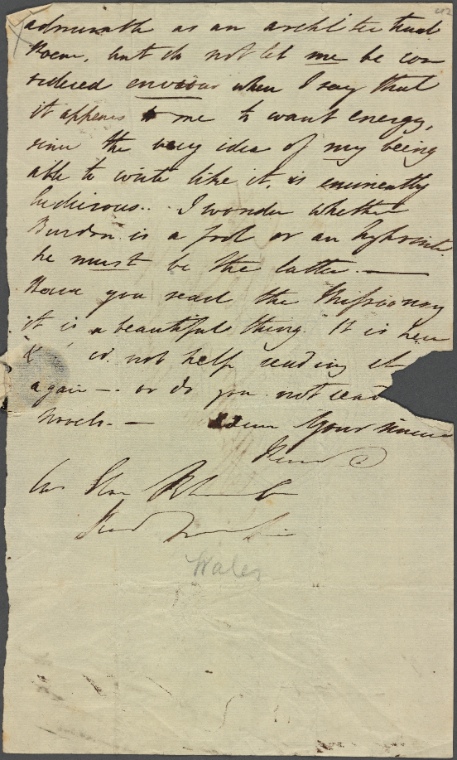 42
admirable as an architectural
Poem, but do not let me be con
sidered envious when I say that
it appears to me to want energy,
since the very idea of my being
able to write like it, is eminently
ludicrous.. I wonder whether
Burdon is a fool or an hypocrite.
he must be the latter. —
Have you read the Missionary
it is a beautiful thing. It is here
& not help reading it
again — or do you not read
novels. — Your since
Friend
Wales